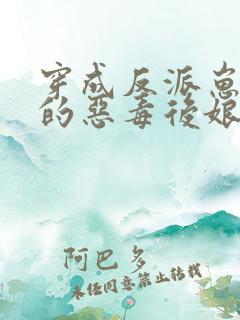 穿成反派崽
的惡毒後娘
阿巴多
未经同意禁止转载